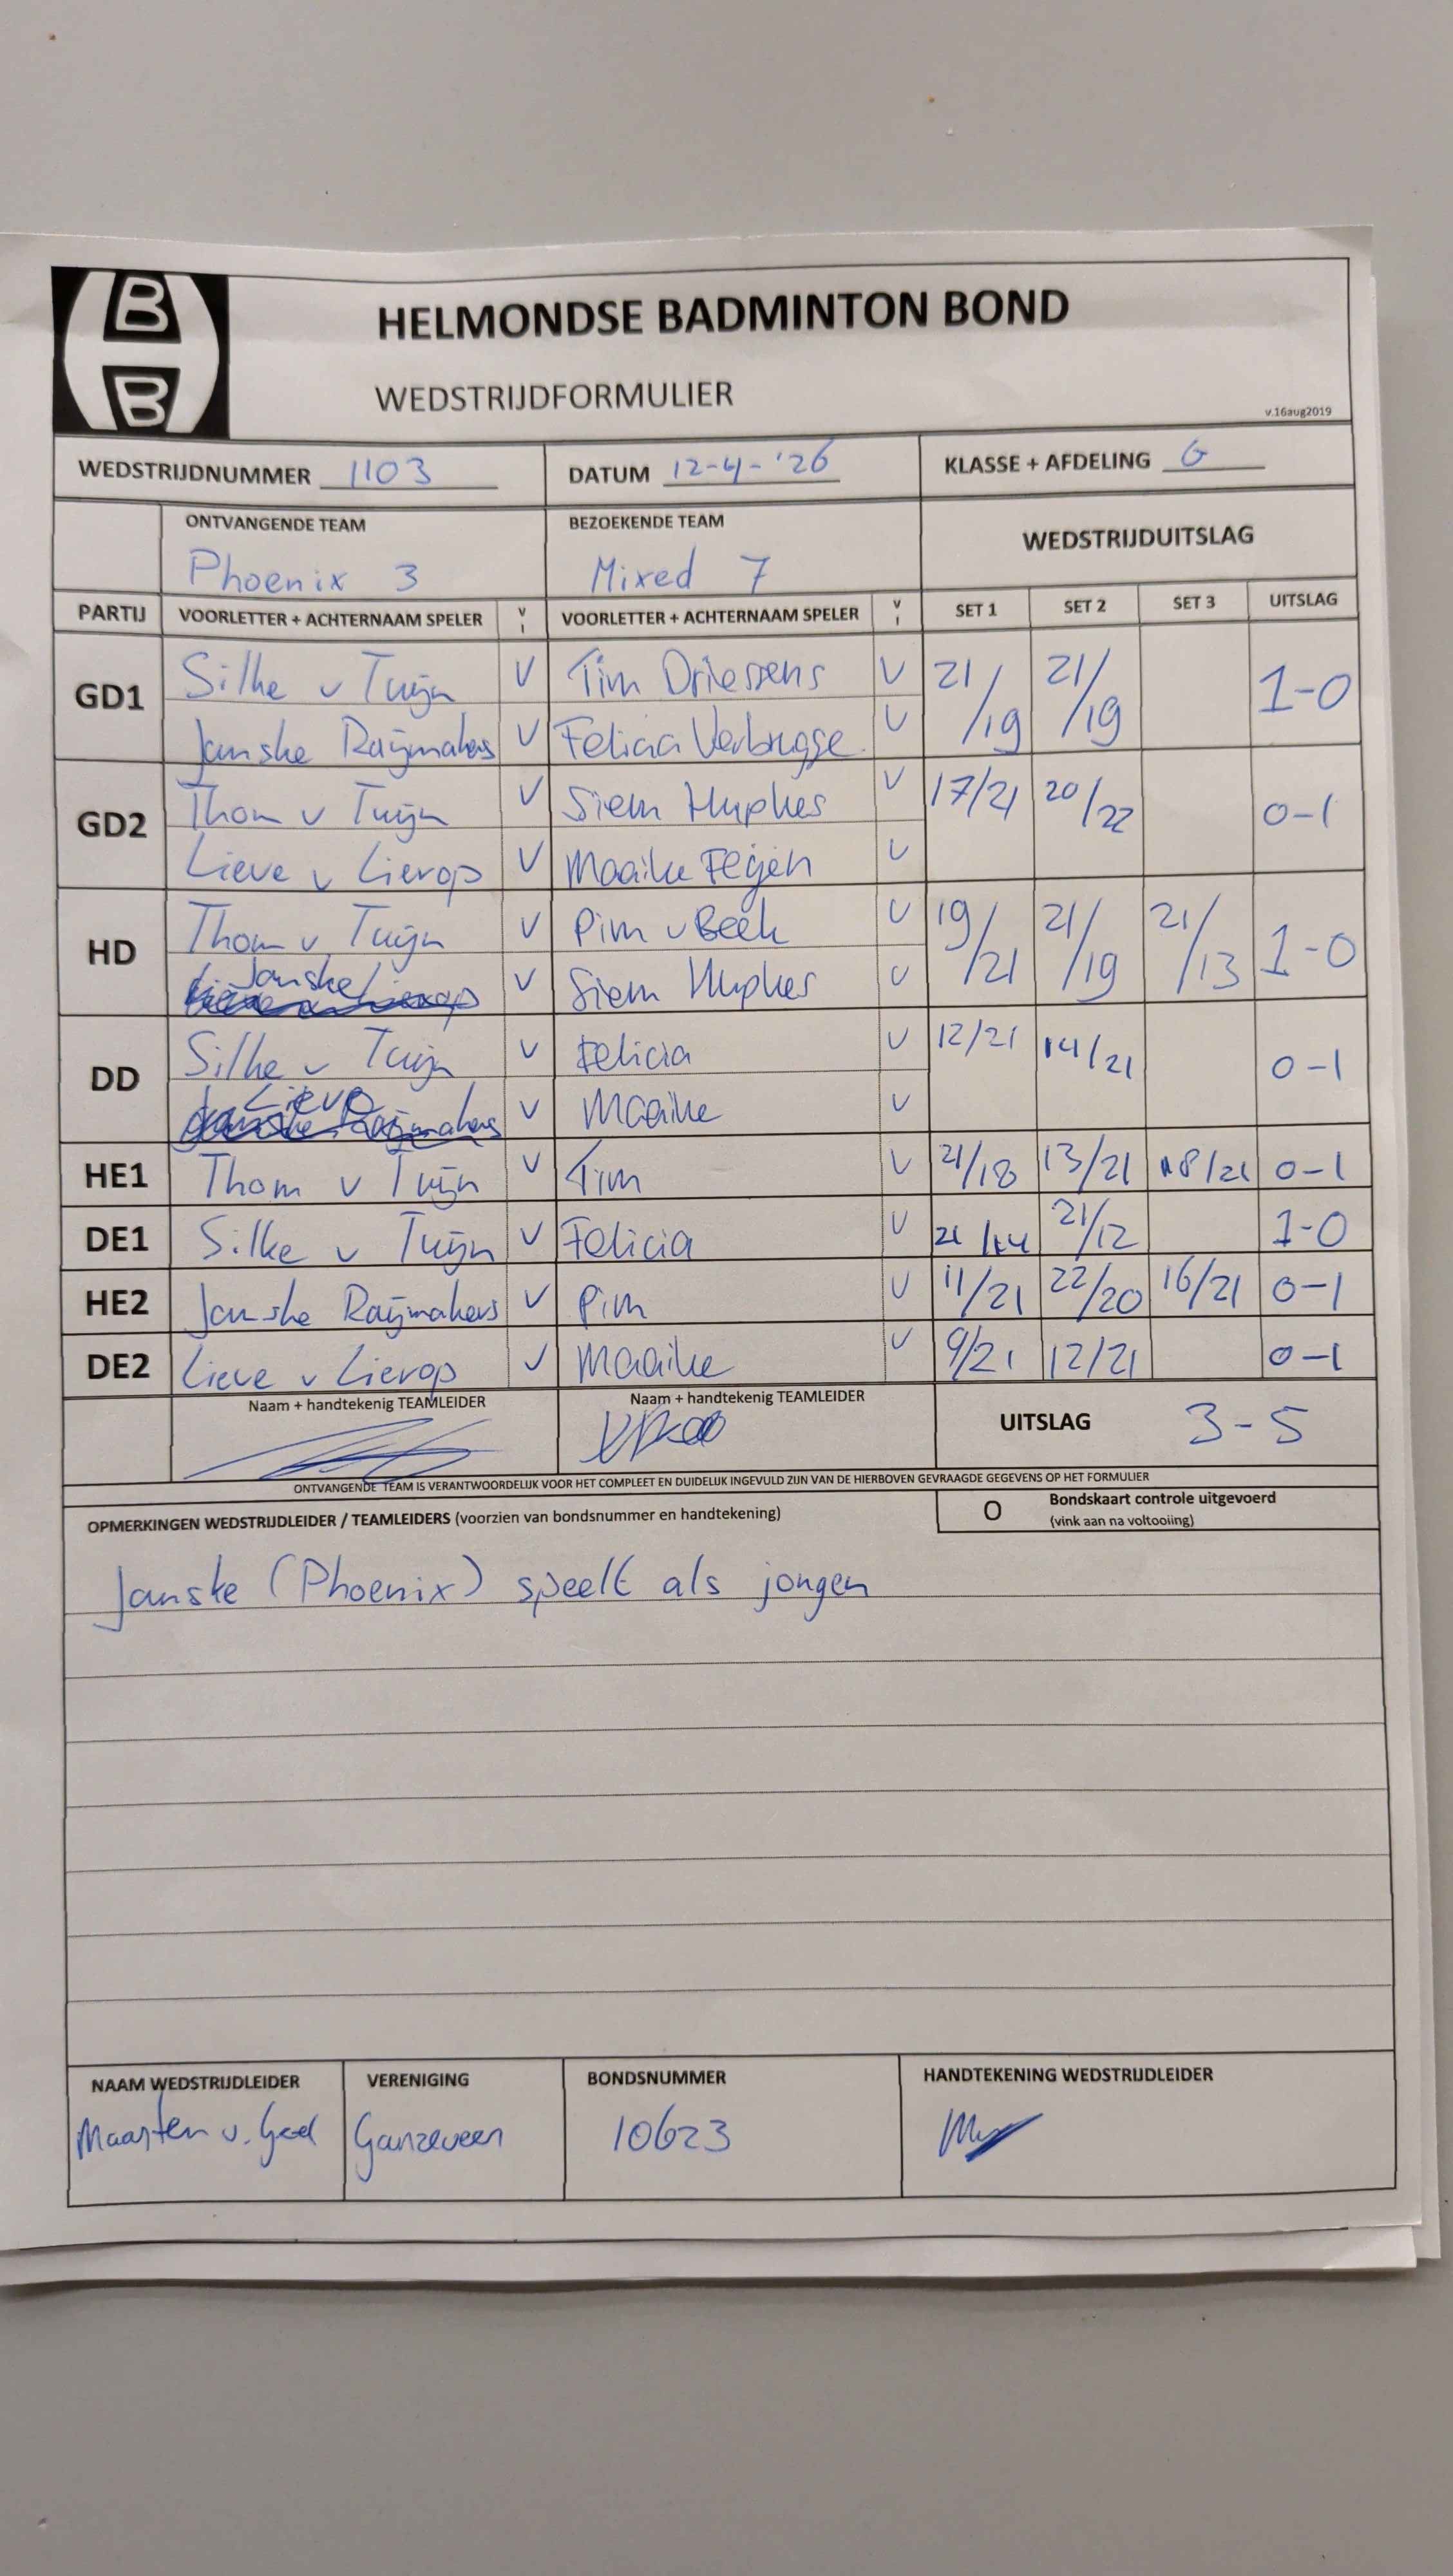 B
B
HELMONDSE BADMINTON BOND
WEDSTRIJDFORMULIER
v.16aug2019
WEDSTRIJDNUMMER 1103 DATUM 12-4-'26 KLASSE + AFDELING G
ONTVANGENDE TEAM BEZOEKENDE TEAM WEDSTRIJDUITSLAG
Phoenix 3 Mixed 7
PARTIJ VOORLETTER + ACHTERNAAM SPELER V I VOORLETTER + ACHTERNAAM SPELER V I SET 1 SET 2 SET 3 UITSLAG
GD1 Silke v Tuijn V Tim Driessens V 21/19 21/19 1-0
Janske Raijmakers V Felicia Verbrugge V
GD2 Thom v Tuijn V Siem Hupkes V 17/21 20/22 0-1
Lieve v Lierop V Maaike Feijen V
HD Thom v Tuijn V Pim v Beek V 19/21 21/19 21/13 1-0
Janske V Siem Hupkes V
DD Silke v Tuijn V Felicia V 12/21 14/21 0-1
Lieve V Maaike V
HE1 Thom v Tuijn V Tim V 21/18 13/21 18/21 0-1
DE1 Silke v Tuijn V Felicia V 21/14 21/12 1-0
HE2 Janske Raijmakers V Pim V 11/21 22/20 16/21 0-1
DE2 Lieve v Lierop V Maaike V 9/21 12/21 0-1
Naam + handtekenig TEAMLEIDER Naam + handtekenig TEAMLEIDER UITSLAG 3-5
ONTVANGENDE TEAM IS VERANTWOORDELIJK VOOR HET COMPLEET EN DUIDELIJK INGEVULD ZIJN VAN DE HIERBOVEN GEVRAAGDE GEGEVENS OP HET FORMULIER
OPMERKINGEN WEDSTRIJDLEIDER / TEAMLEIDERS (voorzien van bondsnummer en handtekening) O Bondskaart controle uitgevoerd
(vink aan na voltooiing)
Janske (Phoenix) speelt als jongen
NAAM WEDSTRIJDLEIDER VERENIGING BONDSNUMMER HANDTEKENING WEDSTRIJDLEIDER
Maarten v. Ganzeveen 10623